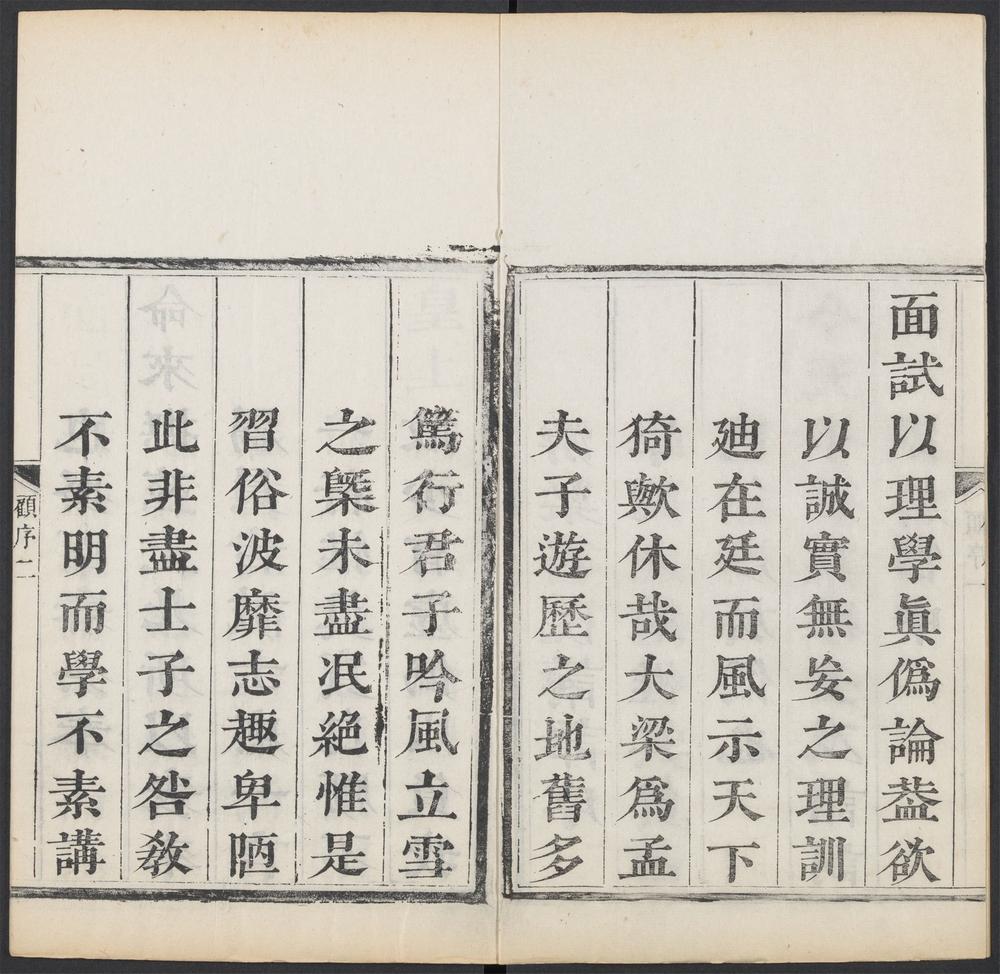 面試以理學眞僞論葢欲
以誠實無妄之理訓
廸在廷而風示天下
猗歟休哉大梁爲孟
夫子遊歷之地舊多
篤行君子吟風立雪
之槩未盡泯絶惟是
習俗波靡志趣卑陋
此非盡士子之咎敎
不素明而學不素講
顧序 二